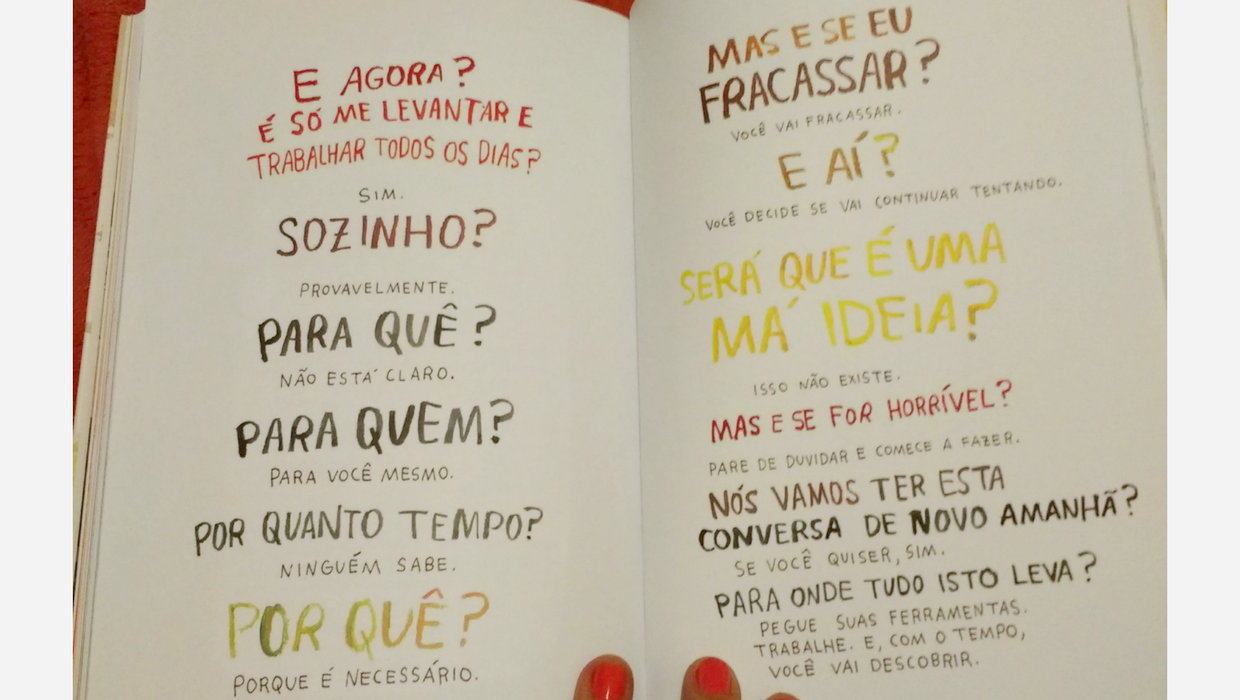 E AGORA?
É SÓ ME LEVANTAR E
TRABALHAR TODOS OS DIAS?
SIM.
SOZINHO?
PROVAVELMENTE.
PARA QUÊ?
NÃO ESTÁ CLARO.
PARA QUEM?
PARA VOCÊ MESMO.
POR QUANTO TEMPO?
NINGUÉM SABE.
POR QUÊ?
PORQUE É NECESSÁRIO.
MAS E SE EU
FRACASSAR?
VOCÊ VAI FRACASSAR.
E AÍ?
VOCÊ DECIDE SE VAI CONTINUAR TENTANDO.
SERÁ QUE É UMA
MÁ IDEIA?
ISSO NÃO EXISTE.
MAS E SE FOR HORRÍVEL?
PARE DE DUVIDAR E COMECE A FAZER.
NÓS VAMOS TER ESTA
CONVERSA DE NOVO AMANHÃ?
SE VOCÊ QUISER, SIM.
PARA ONDE TUDO ISTO LEVA?
PEGUE SUAS FERRAMENTAS.
TRABALHE. E, COM O TEMPO,
VOCÊ VAI DESCOBRIR.